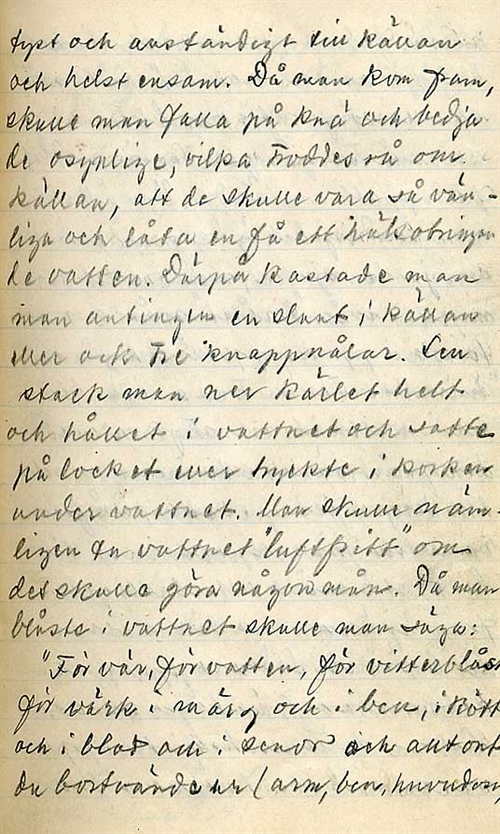 tyst och anständigt till källan
och helst ensam. Då man kom fram,
skulle man falla på knä och bedja
de osynlige, vilka troddes rå om
källan, att de skulle vara så vän-
liga och låta en få ett hälsobringan
de vatten. Därpå kastade man
man antingen en slant i källan
eller ock tre knappnålar. Sen
stack man ner kärlet helt
och hållet i vattnet och satte
på locket eller tryckte i korken
under vattnet. Man skulle näm-
ligen ta vattnet "luftfritt" om
det skulle göra någon mån. Då man
blåste i vattnet skulle man säga:
"För vär, för vatten, för vitterblåst
för värk i märg och i ben, i kött
och i blod och i senor och allt ont
du bortvände ur (arm, ben, huvudon,